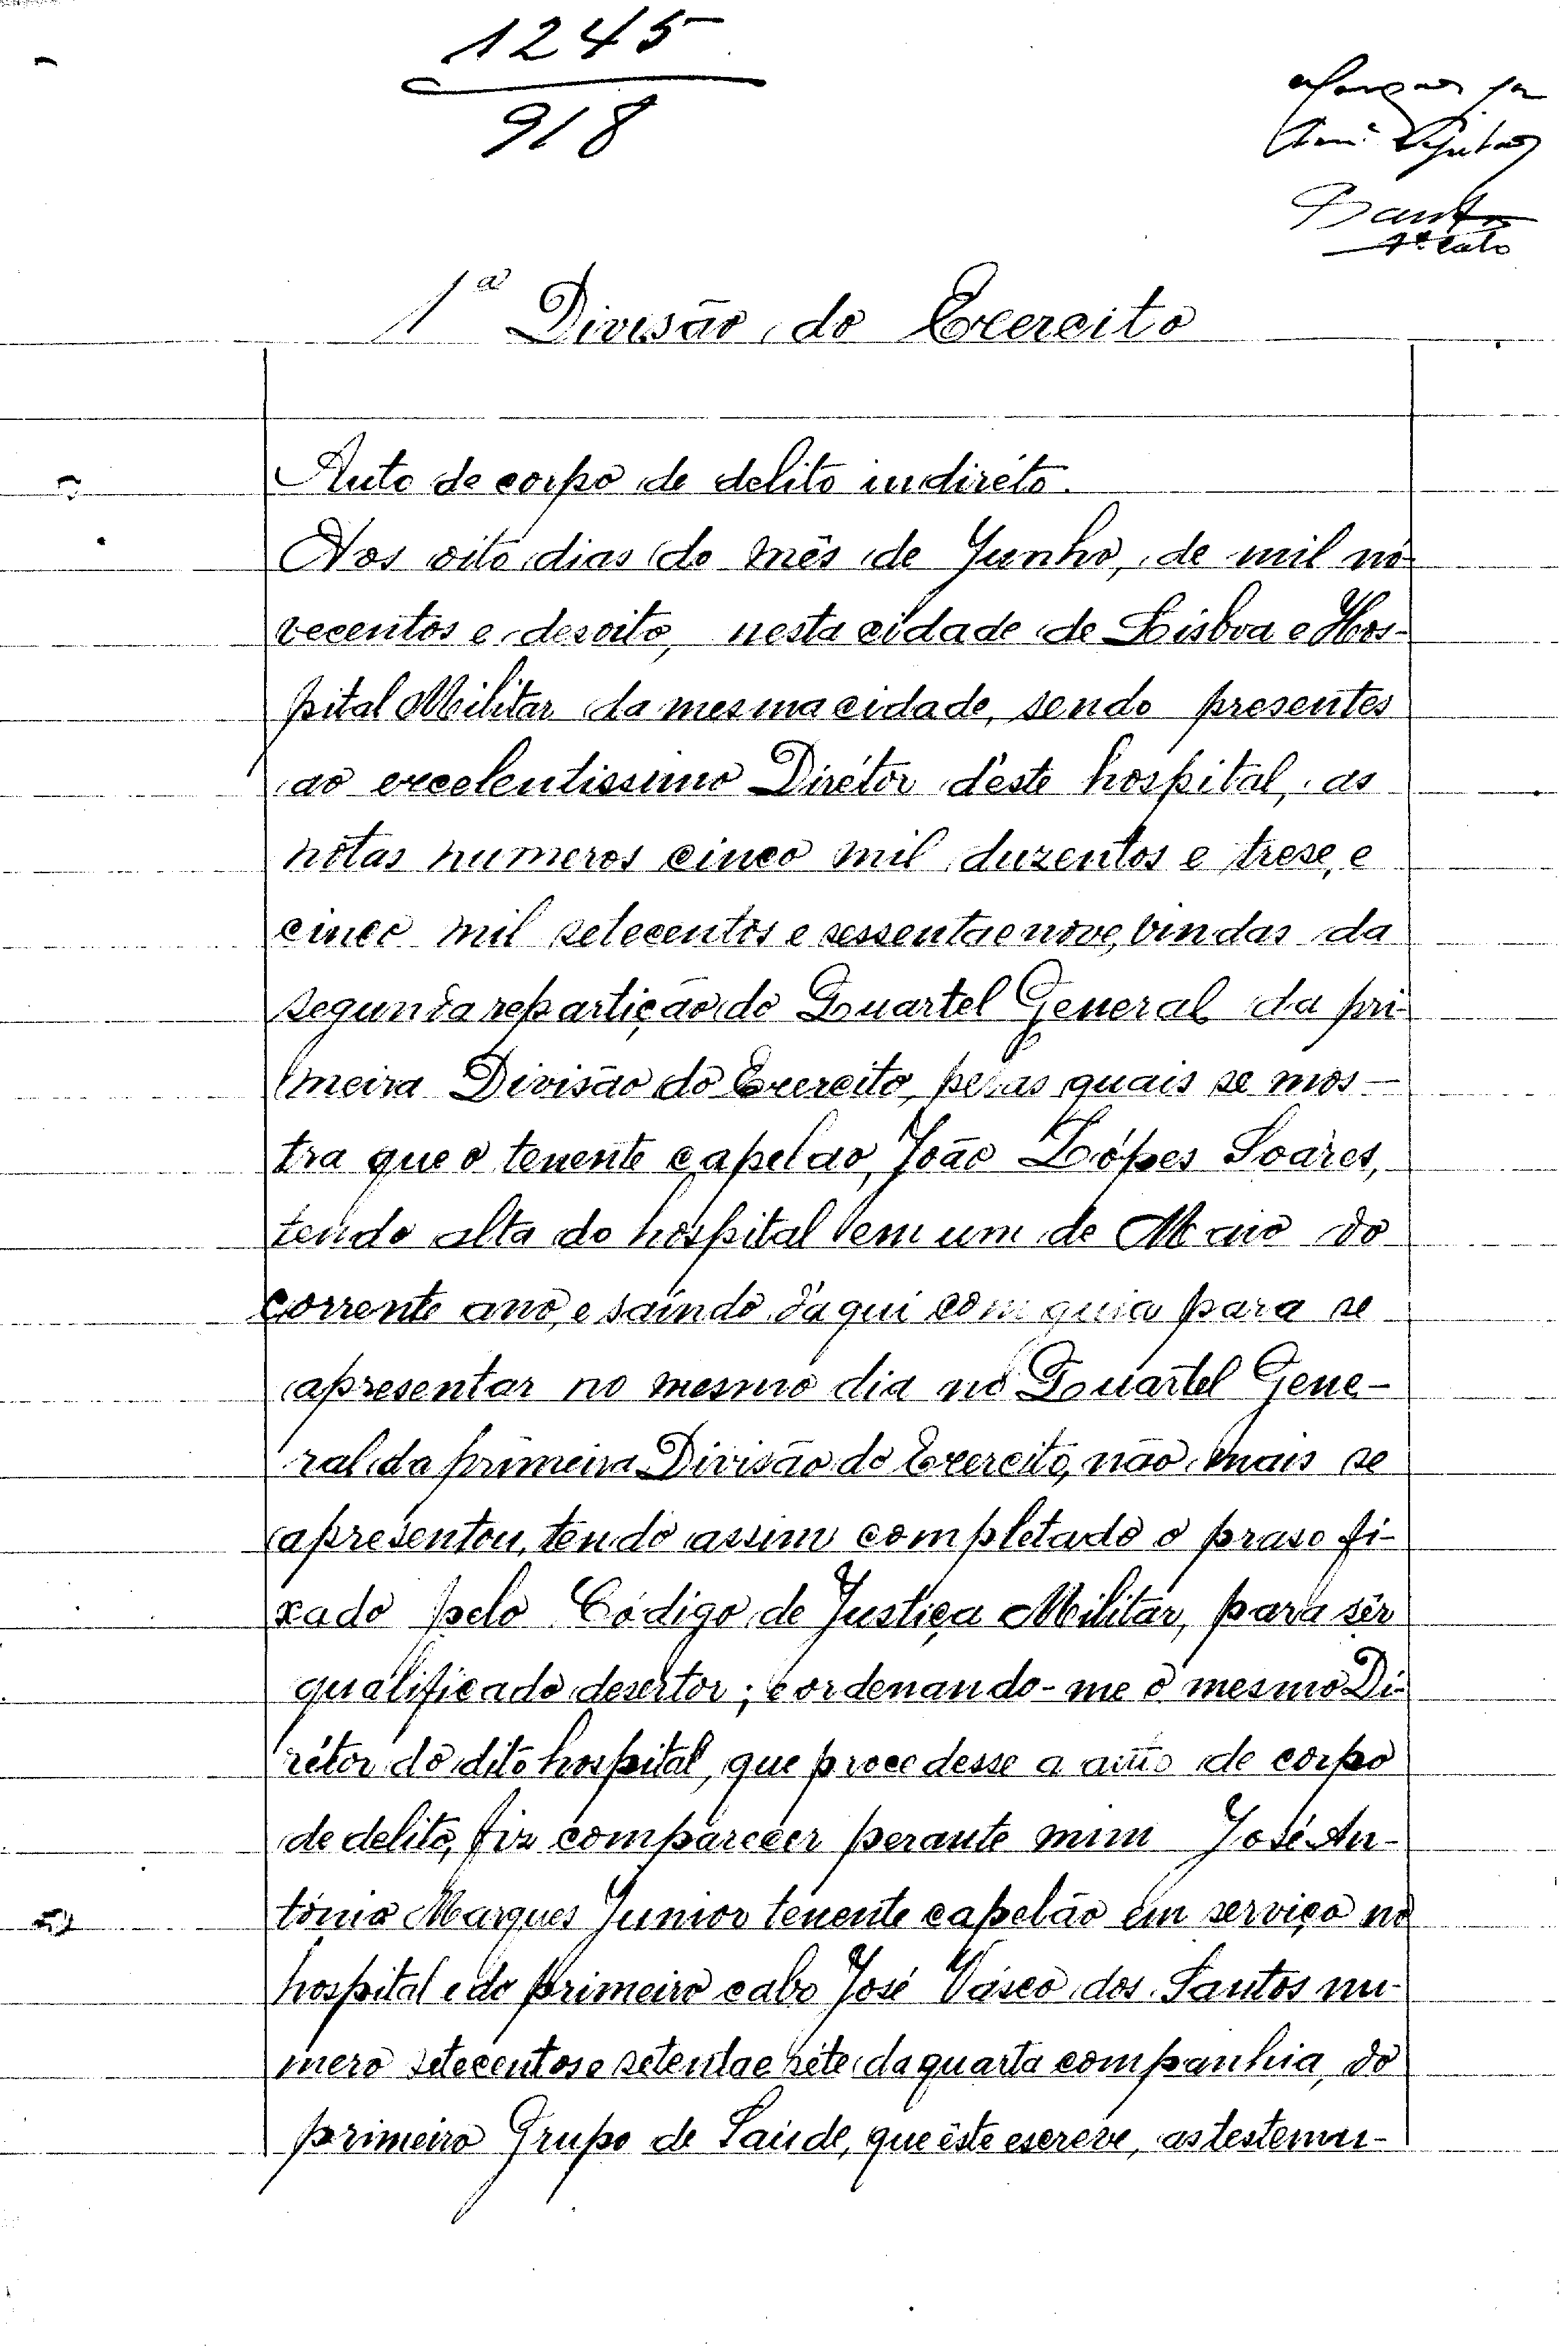 1245
918
Santos
1º cabo
1ª Divisão do Exercito
Auto de corpo de delito indiréto.
Aos oito dias do mês de Junho, de mil no-
vecentos e desoito, nesta cidade de Lisboa e Hos-
pital Militar da mesma cidade, sendo presentes
ao excelentissimo Dirétor dêste hospital, as
nótas numeros cinco mil duzentos e trese, e
cinco mil setecentos e sessenta e nove, vindas da
segunda repartição do Quartel General da pri-
meira Divisão do Exercito, pelas quais se mos-
tra que o tenente capelão, João Lópes Soáres,
tendo alta do hospital em um de Maio do
corrente ano, e saíndo dáqui com guia para se
apresentar no mesmo dia no Quartel Gene-
ral da primeira Divisão do Exercito, não mais se
apresentou, tendo assim completado o praso fi-
xado pelo Código de Justiça Militár, para sêr
qualificado desertor; e ordenando-me o mesmo Di-
rétor do dito hospital, que procedesse a auto de corpo
de delito, fiz comparecer perante mim José An-
tónio Marques Junior tenente capelão em serviço no
hospital e do primeiro cabo José Vásco dos Santos nu-
mero setecentos e setenta e séte da quarta companhia, do
primeiro Grupo de Saúde, que êste escreve, as testemu-